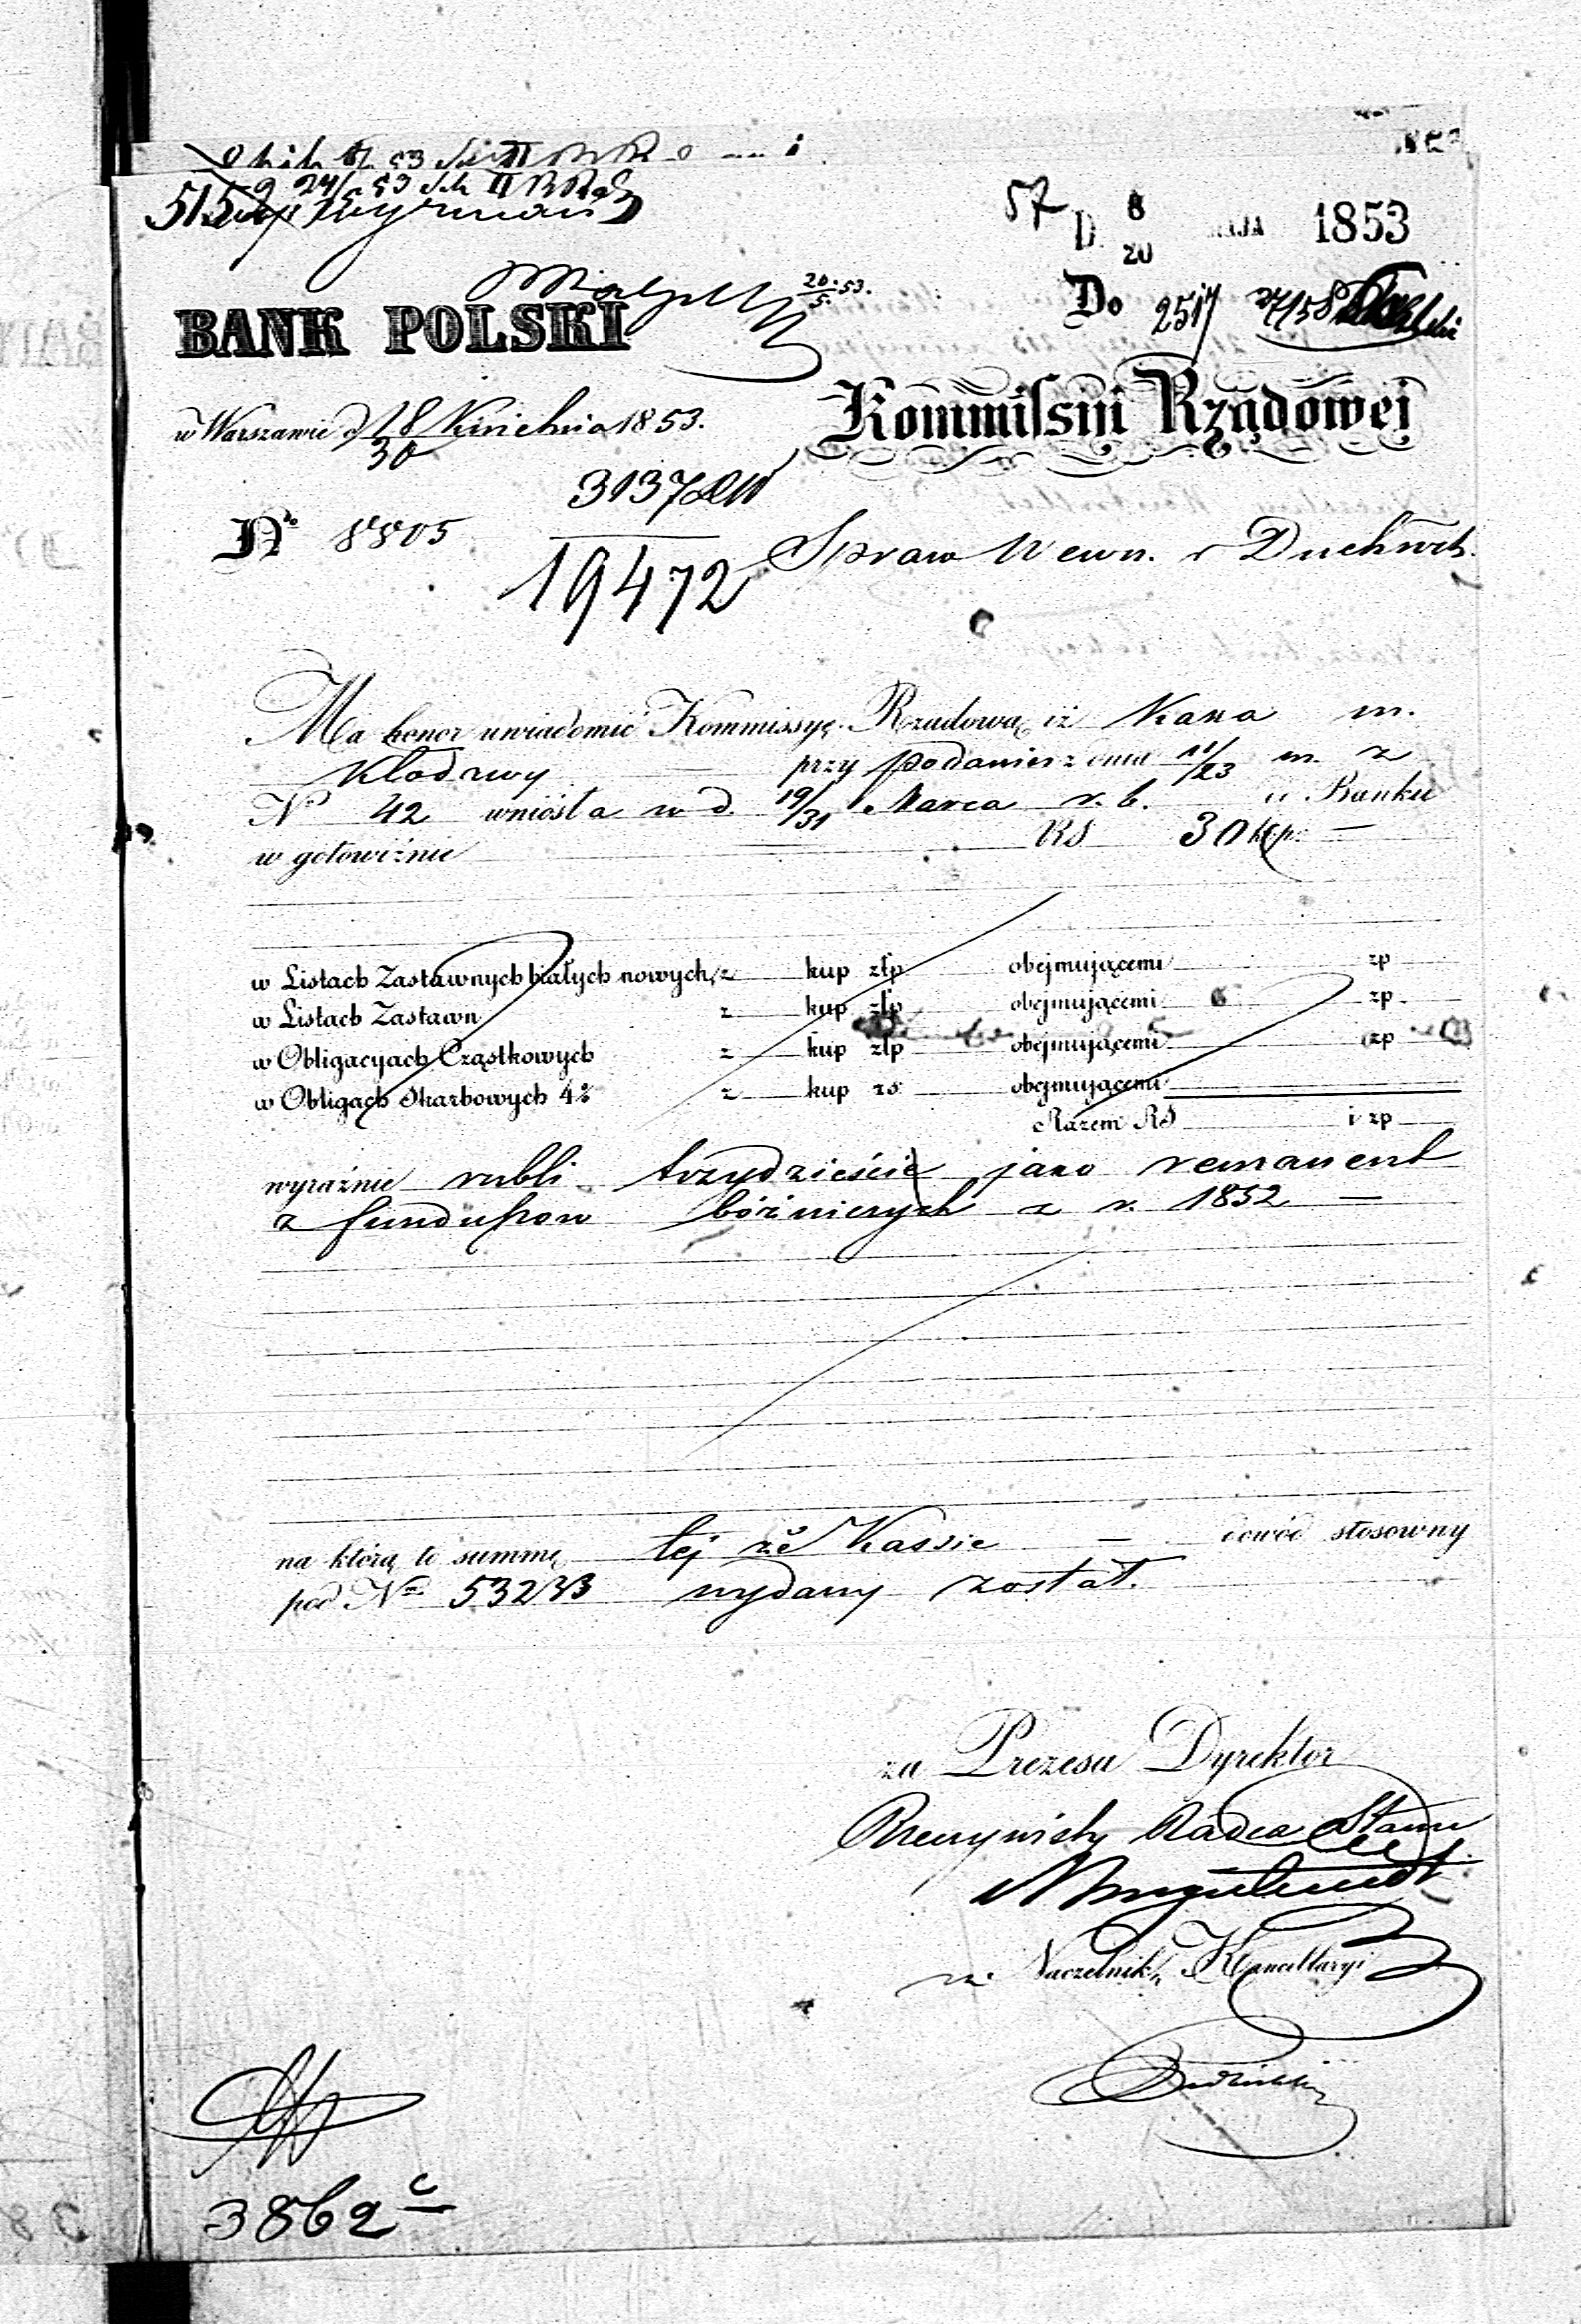 57
D. 8/20 MAJA 1853
20/5.53.
BANK POLSKI
Do 2517
Kommissyi Rządowej
w Warszawie d 18/30 Kwietnia 1853.
31378
No 8805
19472
Spraw Wewn. i Duchwch.
Ma honor uwiadomić Kommissyę Rządową iż Kassa m.
Kłodawy przy podaniu z dnia 11/23 m. z
No 42 wniosła w d. 19/31 Marca r. b. do Banku
w gotowiźnie RS 30 kp. —
w Listach Zastawnych białych nowych z kup złp obejmującemi zp
w Listach Zastawn z kup złp obejmującemi zp
w Obligacyach Cząstkowych z kup złp obejmującemi zp
w Obligach Skarbowych 4% z kup rs obejmującemi
Razem RS i zp
wyraźnie rubli trzydzieście jako remanent
z funduszow bóżniczych z r. 1852 —
na którą to summę tej że Kassie — dowód stosowny
pod No 53233 wydany został.
za Prezesa Dyrektor
Rzeczywisty Radca Stanu
Naczelnik Kancellaryi
3862 c